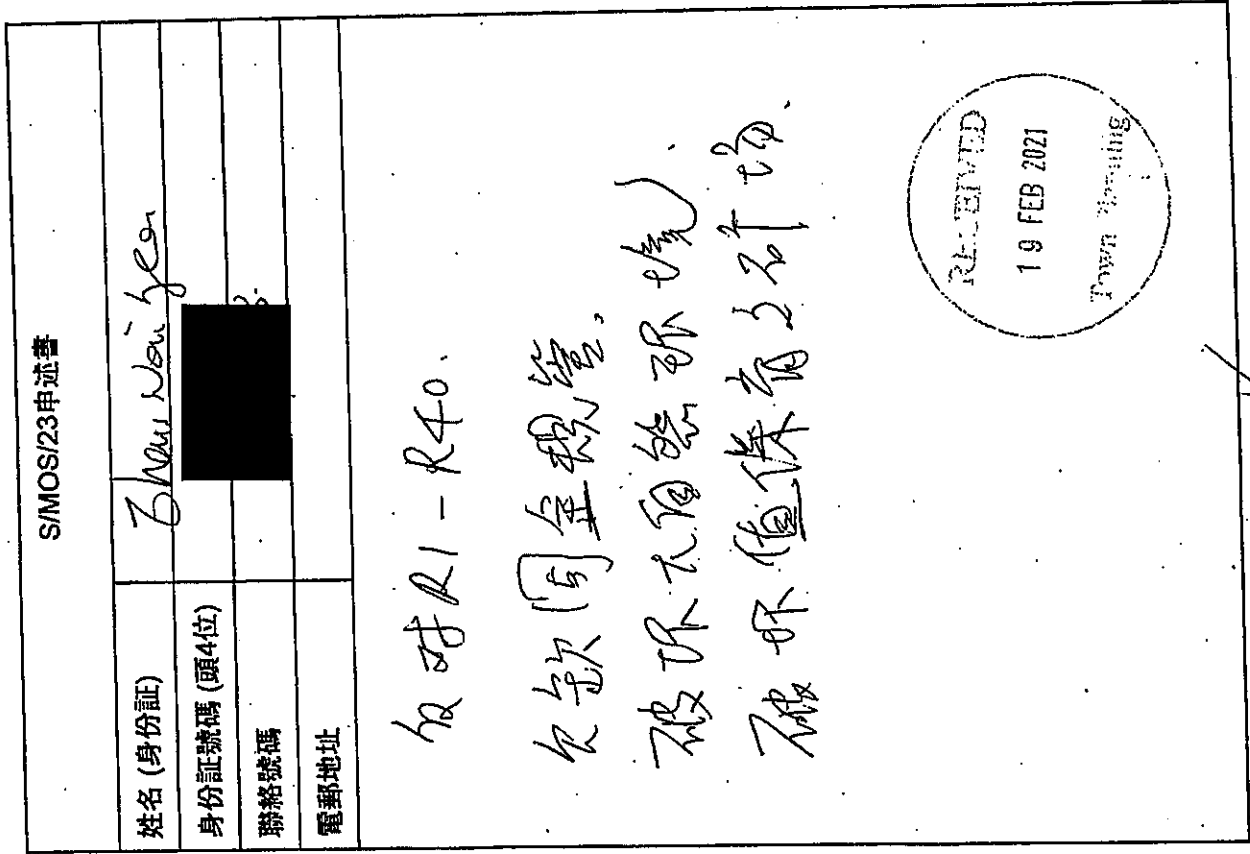 S/MOS/23申述書
姓名 (身份証) Zheng Wai Yee
身份証號碼 (頭4位)
聯絡號碼
電郵地址
反对R1-R40.
欠缺周全規管.
破坏大自然环境
破坏值
RECEIVED
19 FEB 2021
Town Planning